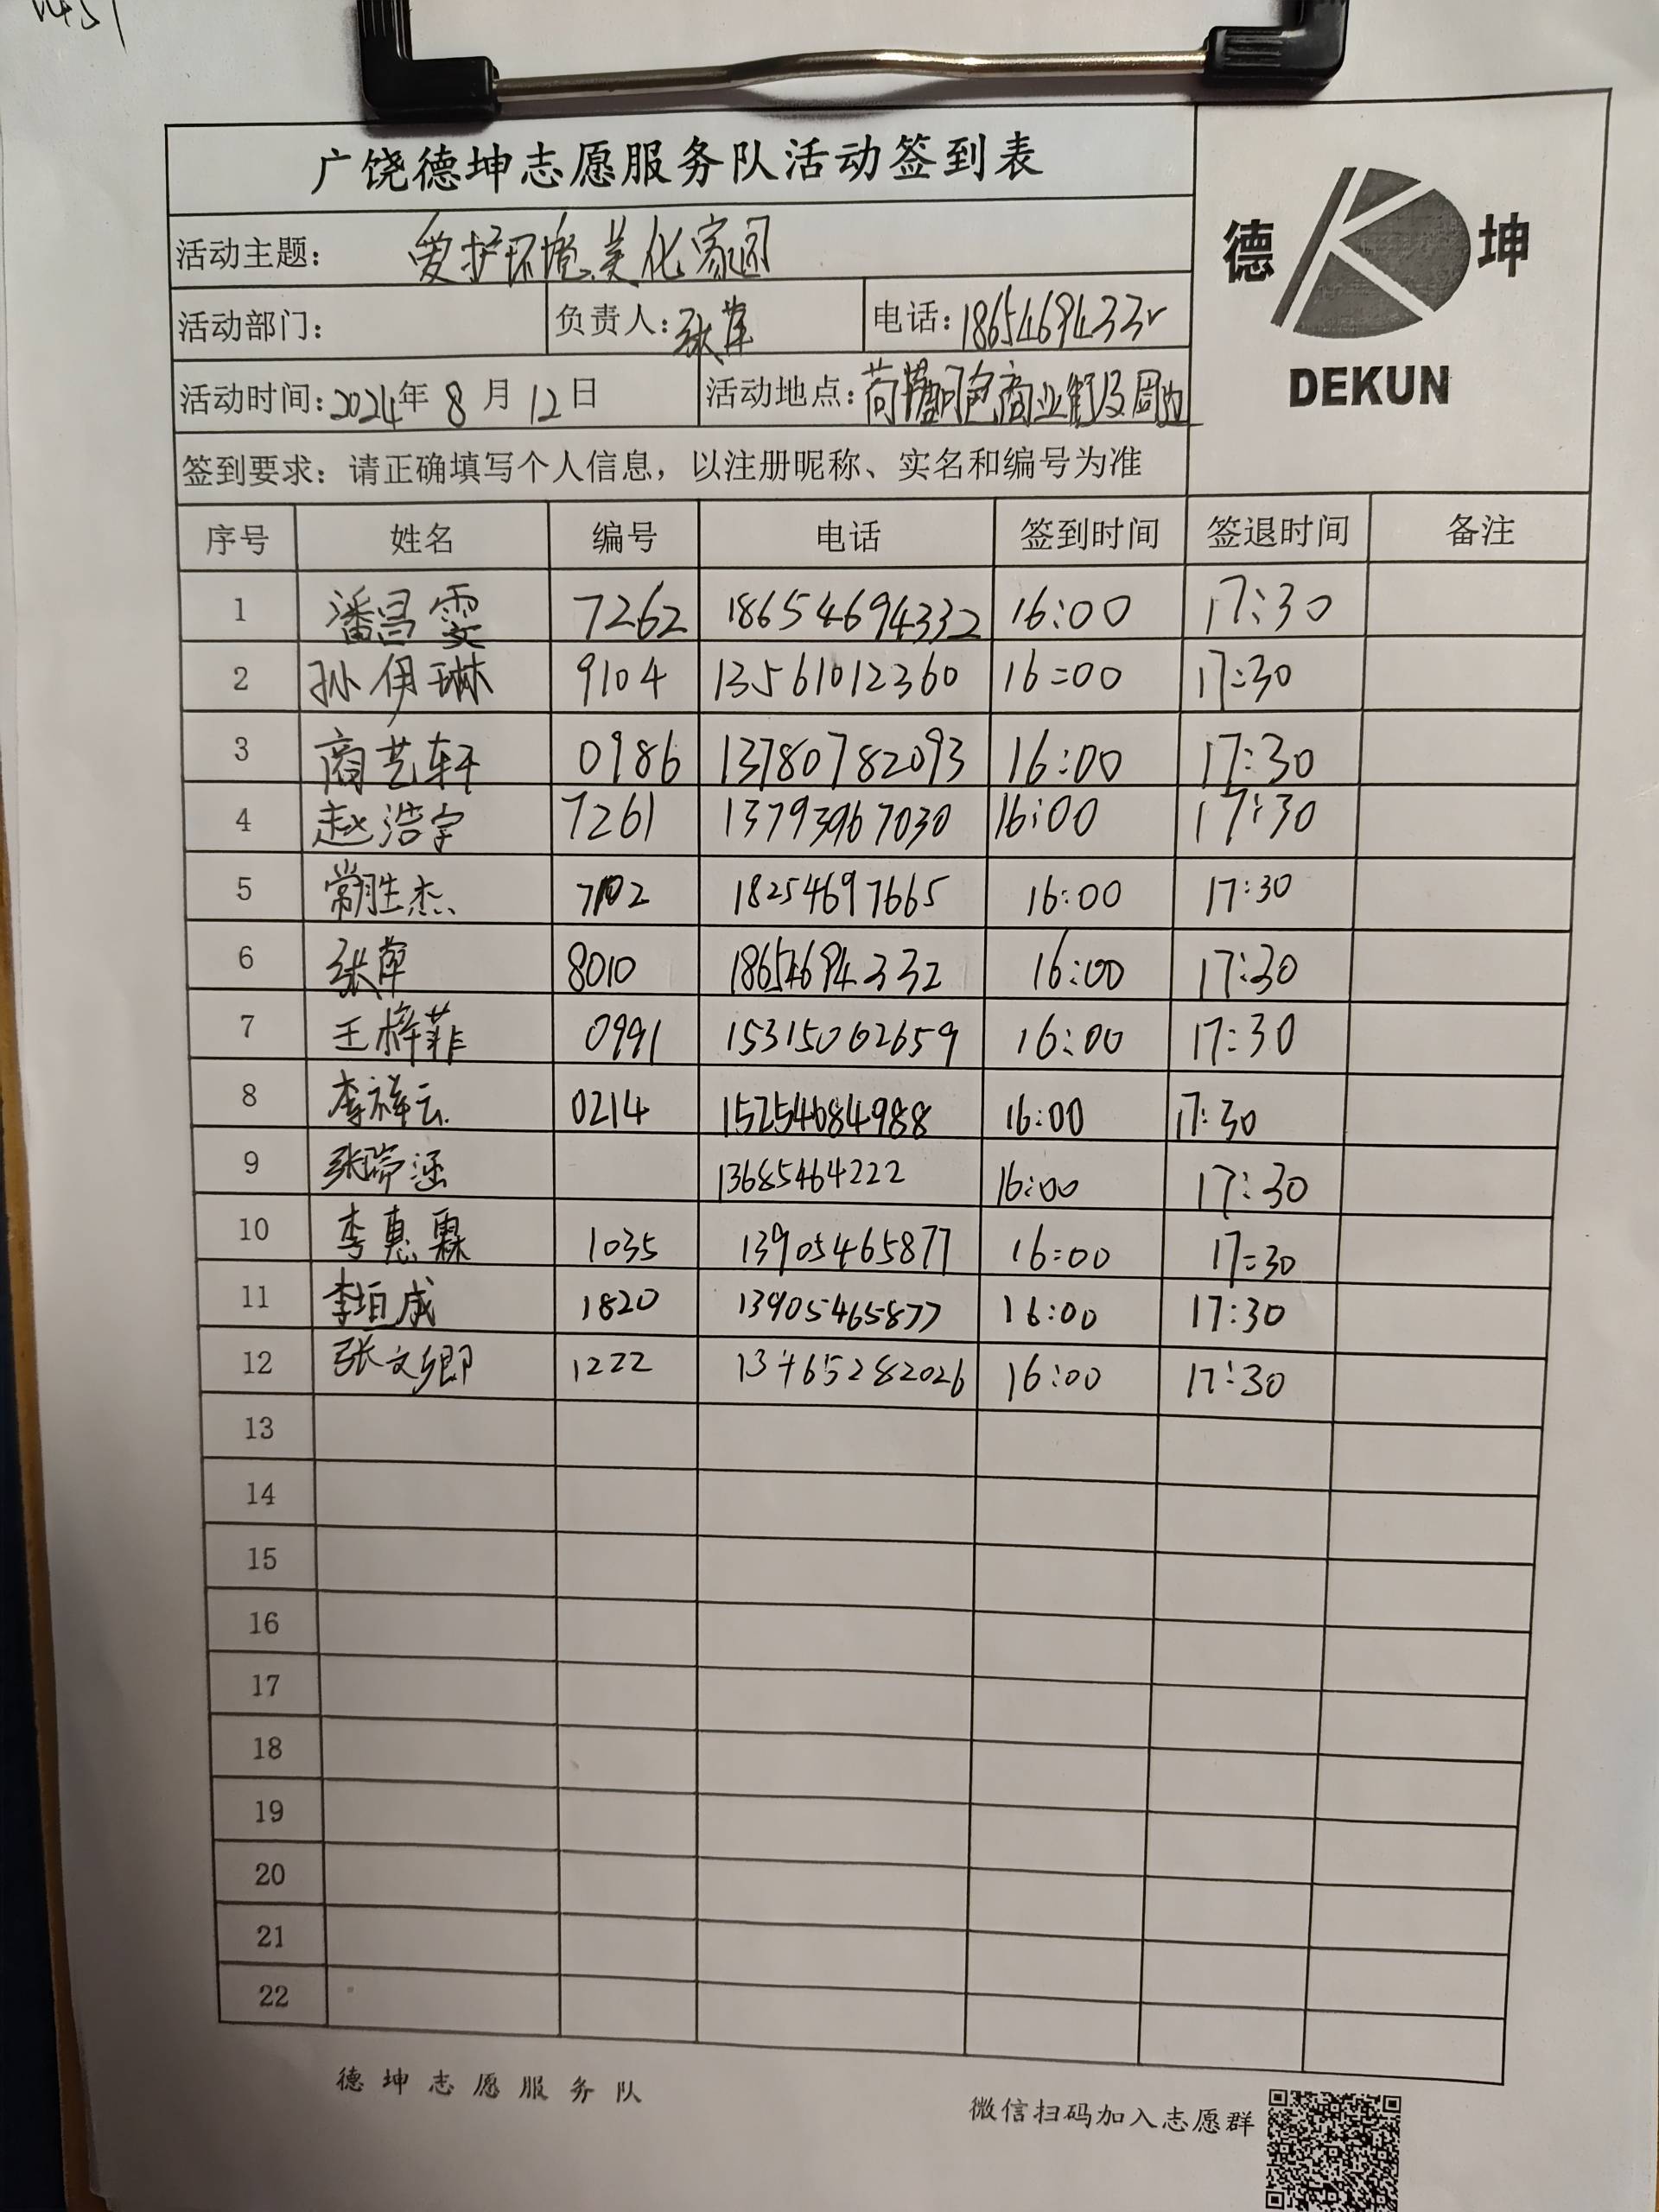 广饶德坤志愿服务队活动签到表
德 坤
DEKUN
活动主题: 爱护环境、美化家园
活动部门: 负责人: 张萍 电话: 18654694332
活动时间: 2024年 8 月 12 日 活动地点: 商业街及周边
签到要求: 请正确填写个人信息, 以注册昵称、实名和编号为准
序号 姓名 编号 电话 签到时间 签退时间 备注
1 潘昌雯 7262 18654694332 16:00 17:30
2 孙伊琳 9104 13561012360 16:00 17:30
3 商艺轩 0986 13780782093 16:00 17:30
4 赵浩宇 7261 13793967030 16:00 17:30
5 常胜杰 7102 18254697665 16:00 17:30
6 张萍 8010 18654694332 16:00 17:30
7 王梓菲 0991 15315062659 16:00 17:30
8 李祥云 0214 15254684988 16:00 17:30
9 张瑞涵 13685464222 16:00 17:30
10 李惠霖 1035 13905465877 16:00 17:30
11 李垣成 1820 13905465877 16:00 17:30
12 张文卿 1222 13465282026 16:00 17:30
13
14
15
16
17
18
19
20
21
22
德坤志愿服务队
微信扫码加入志愿群